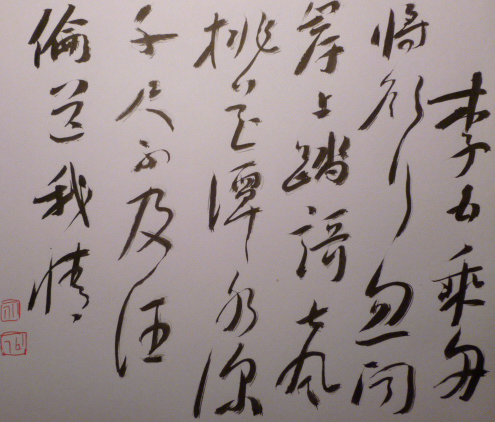 李白乘舟
將欲行忽聞
岸上踏謌聲
桃花潭水深
千尺不及汪
倫送我情